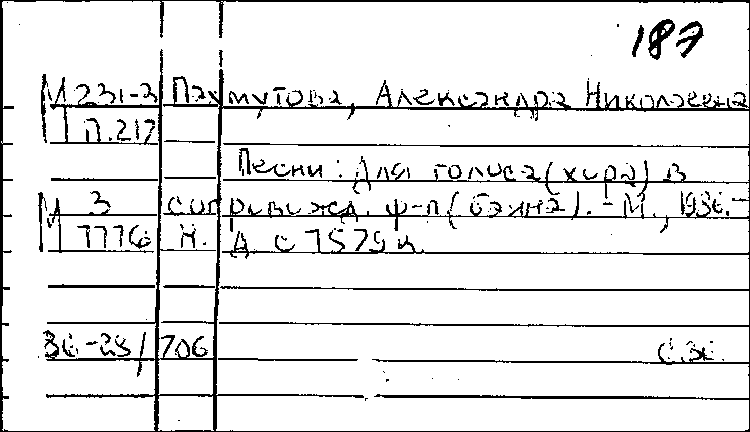 187
М 231-3 Пахмутова, Александра Николаевна
М П.217
Песни: Для голоса (хора) в
М 3 сопровожд. ф-п (баяна). - М., 1986.-
М 7776 Н. Д. с 7579 к
86-28/706 С.86.